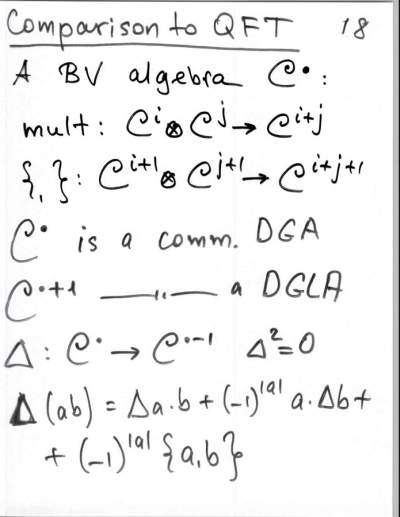 Comparison to QFT 18
A BV algebra C•:
mult: Cⁱ⊗Cʲ→Cⁱ⁺ʲ
{,}: Cⁱ⁺¹⊗Cʲ⁺¹→Cⁱ⁺ʲ⁺¹
C• is a comm. DGA
C•⁺¹ —"— a DGLA
Δ: C•→C•⁻¹ Δ²=0
Δ(ab) = Δa·b + (-1)^|a| a·Δb +
+ (-1)^|a| {a,b}